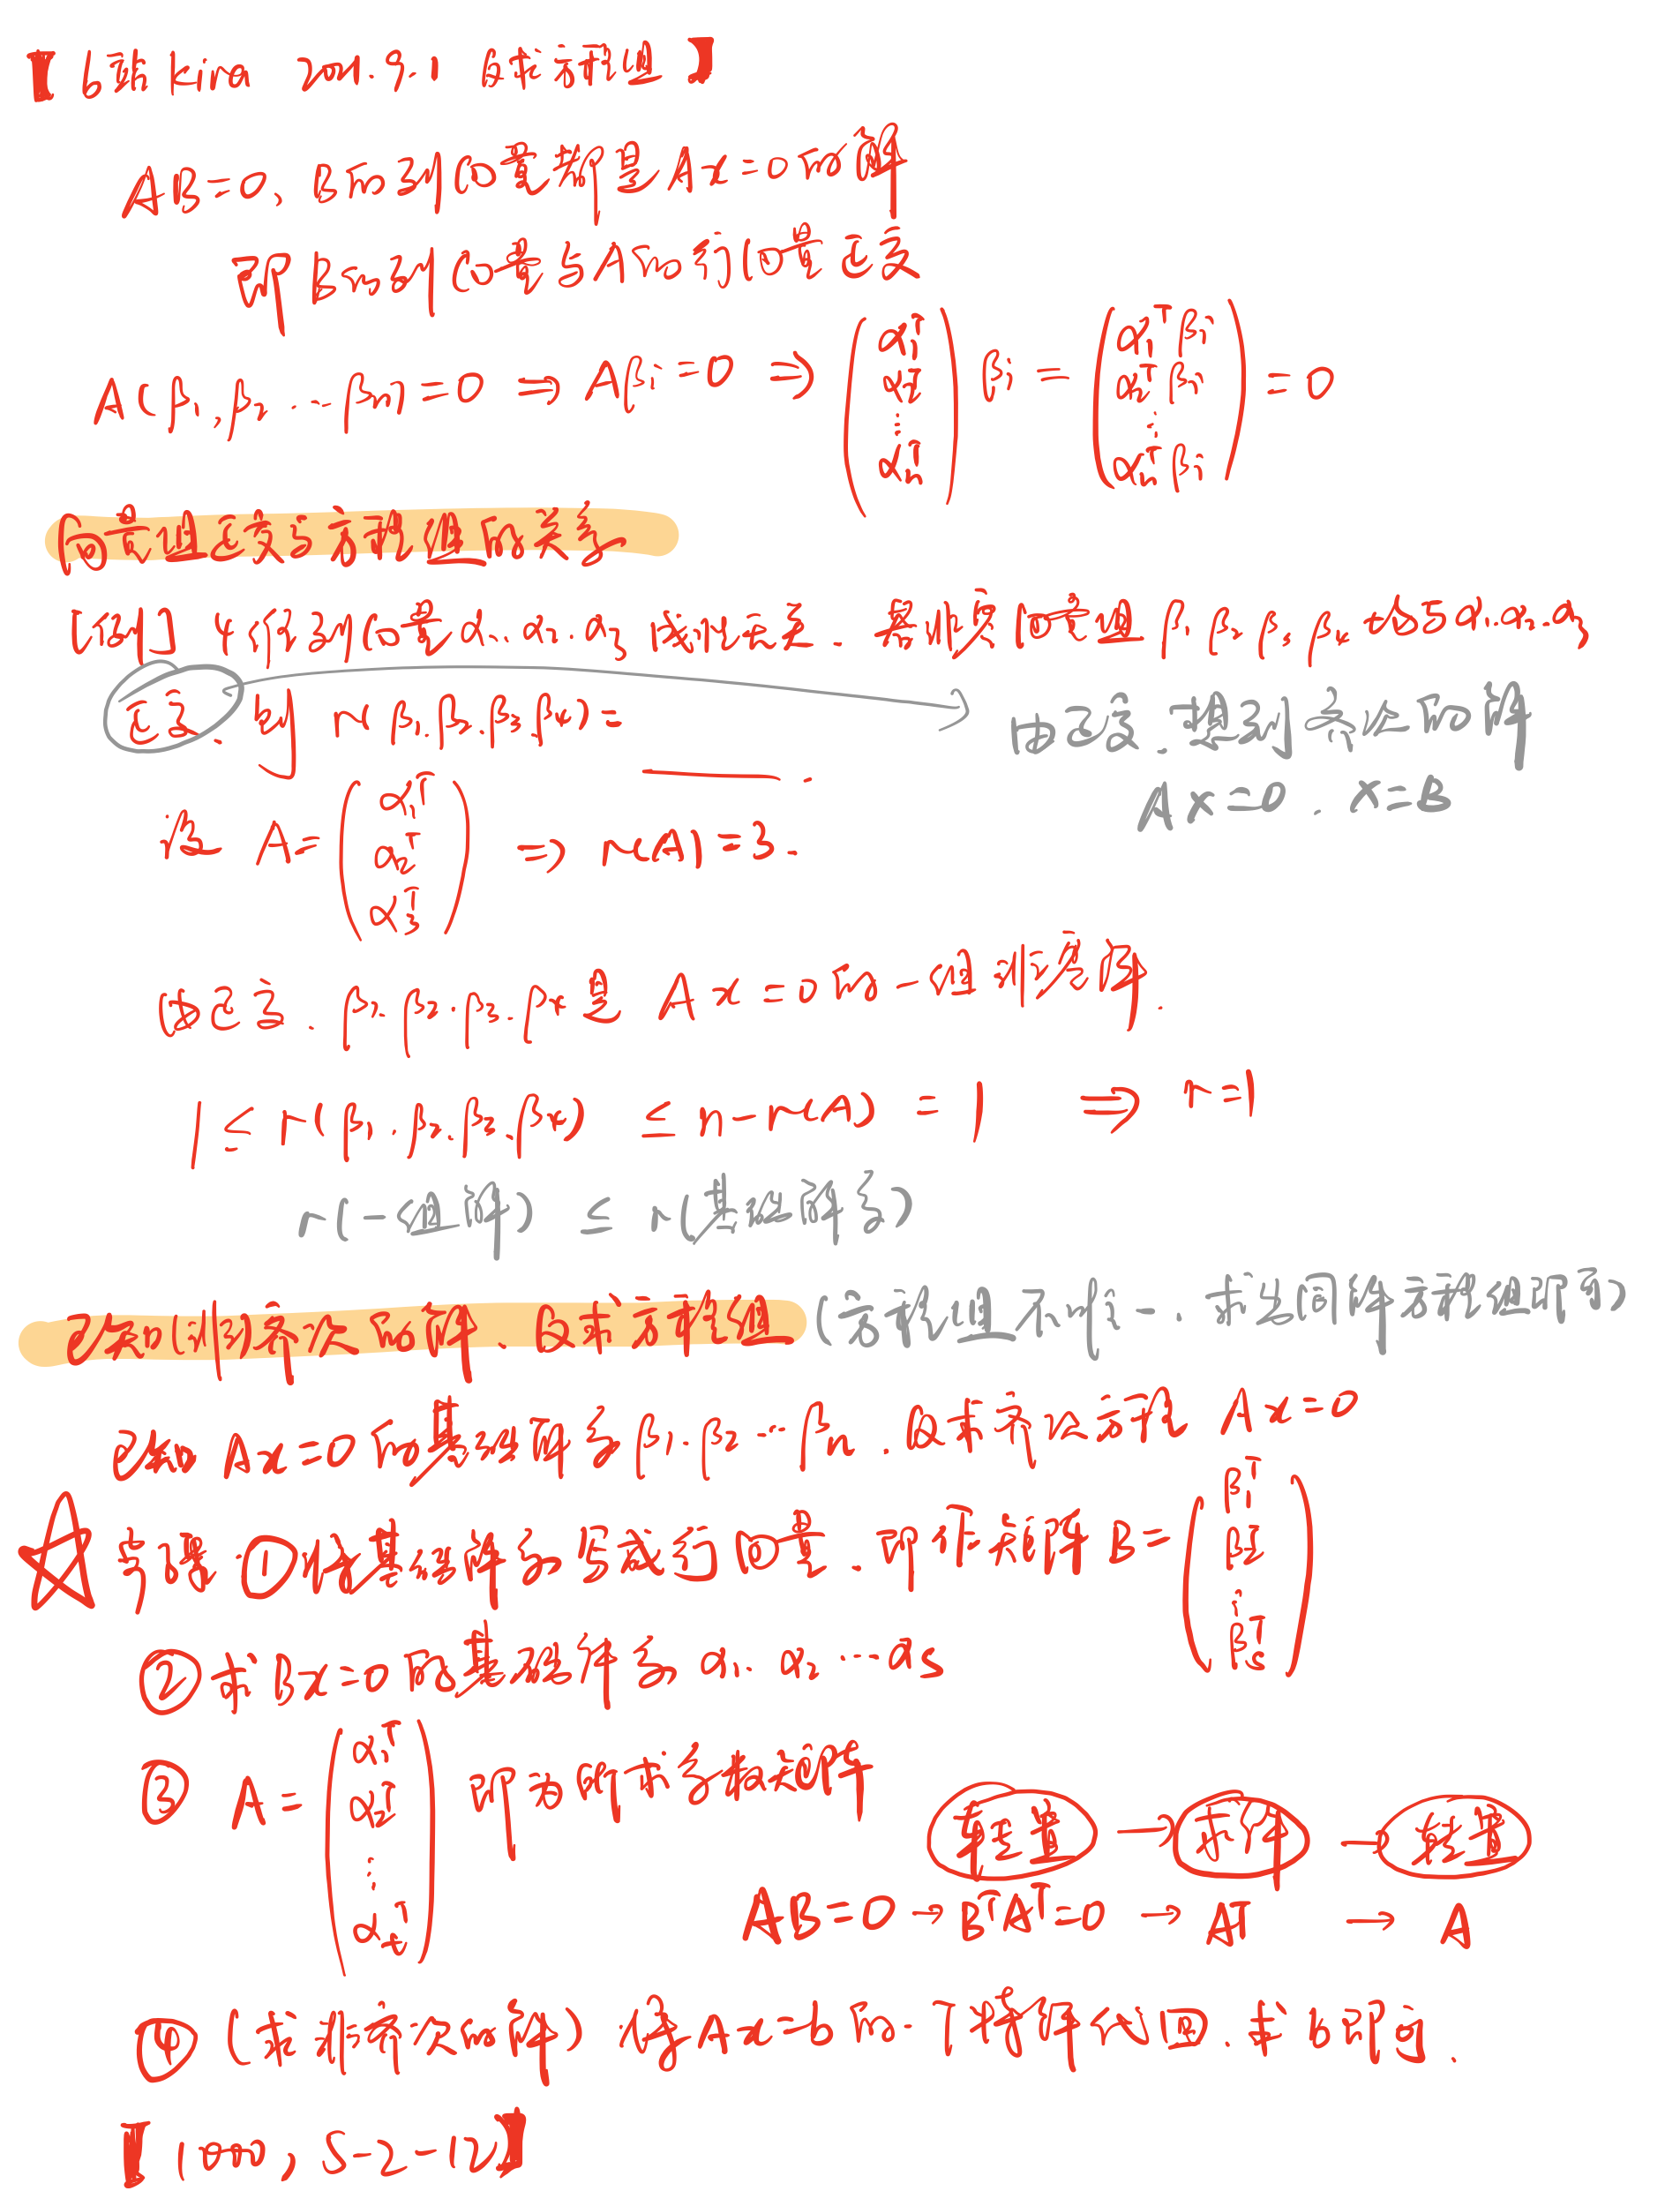 【b站kira 2021.9.1 反求方程组】
AB=0, B的列向量都是Ax=0的解
即B的列向量与A的行向量正交
A(β₁,β₂...βn)=0 ⇒ Aβi=0 ⇒ (α₁ᵀ α₂ᵀ ⋮ αnᵀ) βi = (α₁ᵀβi α₂ᵀβi ⋮ αnᵀβi) = 0
向量组正交与方程组的关系
[例] 4维列向量α₁.α₂.α₃线性无关. 若非零向量组β₁ β₂ β₃ β₄均与α₁.α₂.α₃
正交. 则 r(β₁.β₂.β₃.β₄)=____.
由正交.想到齐次的解
Ax=0. x=B
设 A=(α₁ᵀ α₂ᵀ α₃ᵀ) ⇒ r(A)=3.
由正交. β₁.β₂.β₃.β₄是 Ax=0的一组非零解.
1≤r(β₁.β₂.β₃.β₄) ≤n-r(A)=1 ⇒ r=1
r(一组解) ≤ r(基础解系)
已知(非)齐次的解、反求方程组 (方程组不唯一. 求出同解方程组即可)
已知Ax=0的基础解系β₁.β₂…βn. 反求齐次方程 Ax=0
☆ 步骤.①将基础解系写成行向量. 即作矩阵B=(β₁ᵀ β₂ᵀ ⋮ βsᵀ)
②求Bx=0的基础解系 α₁. α₂…αs
③ A=(α₁ᵀ α₂ᵀ ⋮ αtᵀ) 即为所求系数矩阵
转置 → 求解 → 转置
AB=0→BᵀAᵀ=0 → Aᵀ → A
④(求非齐次的解) 将Ax=b的一个特解代回.求b即可.
【1000, 5-2-12】